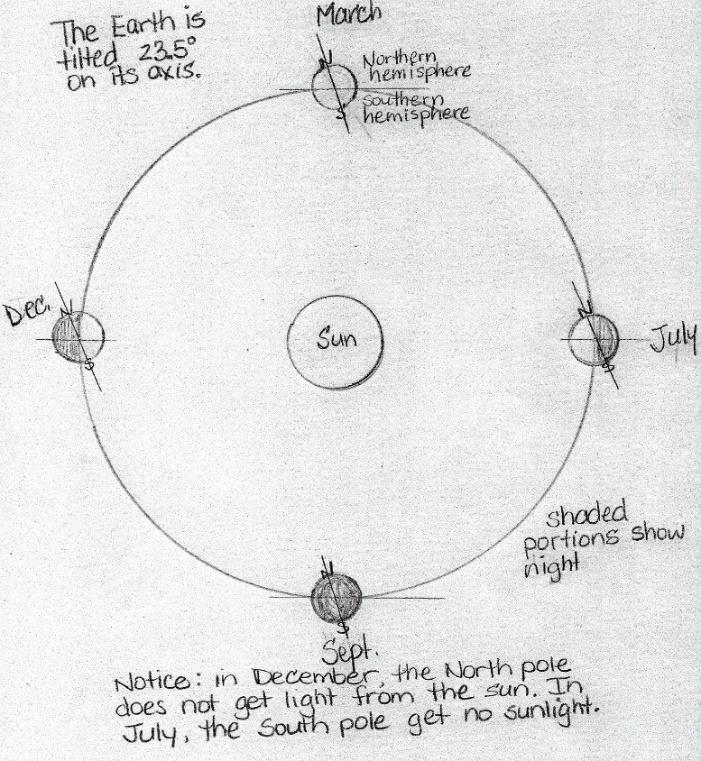 The Earth is
tilted 23.5°
on its axis.
March
N
Northern
hemisphere
Southern
hemisphere
S
Dec.
N
S
Sun
N
July
S
shaded
portions show
night
N
S
Sept.
Notice: in December, the North pole
does not get light from the sun. In
July, the South pole get no sunlight.